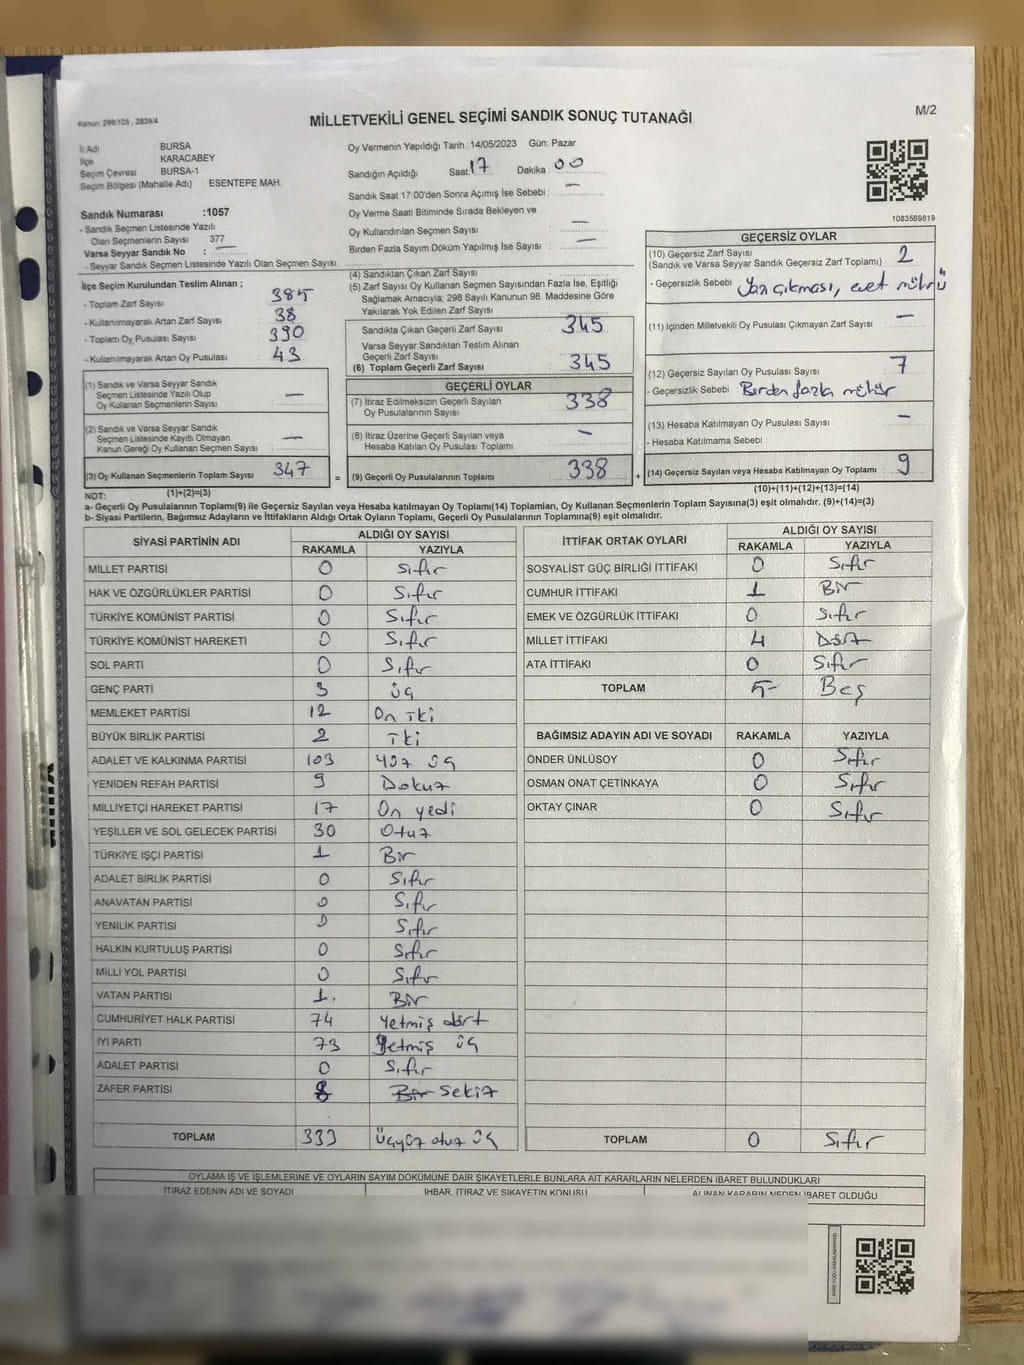 Kanun: 298/105, 2839/4
MİLLETVEKİLİ GENEL SEÇİMİ SANDIK SONUÇ TUTANAĞI
M/2
İl Adı : BURSA
İlçe : KARACABEY
Seçim Çevresi : BURSA-1
Seçim Bölgesi (Mahalle Adı) : ESENTEPE MAH.
Sandık Numarası :1057
- Sandık Seçmen Listesinde Yazılı
Olan Seçmenlerin Sayısı : 377
Varsa Seyyar Sandık No : —
- Seyyar Sandık Seçmen Listesinde Yazılı Olan Seçmen Sayısı:
Oy Vermenin Yapıldığı Tarih : 14/05/2023 Gün: Pazar
Sandığın Açıldığı Saat: 17 Dakika : 00
Sandık Saat 17:00'den Sonra Açımış İse Sebebi : —
Oy Verme Saati Bitiminde Sırada Bekleyen ve
Oy Kullandırılan Seçmen Sayısı : —
Birden Fazla Sayım Döküm Yapılmış İse Sayısı : —
1083569819
İlçe Seçim Kurulundan Teslim Alınan ;
- Toplam Zarf Sayısı : 385
- Kullanılmayarak Artan Zarf Sayısı : 38
- Toplam Oy Pusulası Sayısı : 390
- Kullanılmayarak Artan Oy Pusulası : 43
(1) Sandık ve Varsa Seyyar Sandık
Seçmen Listesinde Yazılı Olup
Oy Kullanan Seçmenlerin Sayısı : —
(2) Sandık ve Varsa Seyyar Sandık
Seçmen Listesinde Kayıtlı Olmayan
Kanun Gereği Oy Kullanan Seçmen Sayısı : —
(3) Oy Kullanan Seçmenlerin Toplam Sayısı : 347 =
(1)+(2)=(3)
(4) Sandıktan Çıkan Zarf Sayısı :
(5) Zarf Sayısı Oy Kullanan Seçmen Sayısından Fazla İse, Eşitliği
Sağlamak Amacıyla; 298 Sayılı Kanunun 98. Maddesine Göre
Yakılarak Yok Edilen Zarf Sayısı :
Sandıkta Çıkan Geçerli Zarf Sayısı : 345
Varsa Seyyar Sandıktan Teslim Alınan
Geçerli Zarf Sayısı :
(6) Toplam Geçerli Zarf Sayısı : 345
GEÇERLİ OYLAR
(7) İtiraz Edilmeksizin Geçerli Sayılan
Oy Pusulalarının Sayısı : 338
(8) İtiraz Üzerine Geçerli Sayılan veya
Hesaba Katılan Oy Pusulası Toplamı : —
(9) Geçerli Oy Pusulalarının Toplamı : 338 +
GEÇERSİZ OYLAR
(10) Geçersiz Zarf Sayısı
(Sandık ve Varsa Seyyar Sandık Geçersiz Zarf Toplamı) : 2
- Geçersizlik Sebebi : Yazı çıkması, evet mührü
(11) İçinden Milletvekili Oy Pusulası Çıkmayan Zarf Sayısı : —
(12) Geçersiz Sayılan Oy Pusulası Sayısı : 7
- Geçersizlik Sebebi : Birden fazla mühür
(13) Hesaba Katılmayan Oy Pusulası Sayısı : —
- Hesaba Katılmama Sebebi :
(14) Geçersiz Sayılan veya Hesaba Katılmayan Oy Toplamı : 9
(10)+(11)+(12)+(13)=(14)
NOT:
a- Geçerli Oy Pusulalarının Toplamı(9) ile Geçersiz Sayılan veya Hesaba katılmayan Oy Toplamı(14) Toplamları, Oy Kullanan Seçmenlerin Toplam Sayısına(3) eşit olmalıdır. (9)+(14)=(3)
b- Siyasi Partilerin, Bağımsız Adayların ve İttifakların Aldığı Ortak Oyların Toplamı, Geçerli Oy Pusulalarının Toplamına(9) eşit olmalıdır.
SİYASİ PARTİNİN ADI ALDIĞI OY SAYISI
RAKAMLA YAZIYLA
MİLLET PARTİSİ 0 Sıfır
HAK VE ÖZGÜRLÜKLER PARTİSİ 0 Sıfır
TÜRKİYE KOMÜNİST PARTİSİ 0 Sıfır
TÜRKİYE KOMÜNİST HAREKETİ 0 Sıfır
SOL PARTİ 0 Sıfır
GENÇ PARTİ 3 üç
MEMLEKET PARTİSİ 12 On iki
BÜYÜK BİRLİK PARTİSİ 2 iki
ADALET VE KALKINMA PARTİSİ 103 yüz üç
YENİDEN REFAH PARTİSİ 9 Dokuz
MİLLİYETÇİ HAREKET PARTİSİ 17 On yedi
YEŞİLLER VE SOL GELECEK PARTİSİ 30 Otuz
TÜRKİYE İŞÇİ PARTİSİ 1 Bir
ADALET BİRLİK PARTİSİ 0 Sıfır
ANAVATAN PARTİSİ 0 Sıfır
YENİLİK PARTİSİ 0 Sıfır
HALKIN KURTULUŞ PARTİSİ 0 Sıfır
MİLLİ YOL PARTİSİ 0 Sıfır
VATAN PARTİSİ 1. Bir
CUMHURİYET HALK PARTİSİ 74 Yetmiş dört
İYİ PARTİ 73 Yetmiş üç
ADALET PARTİSİ 0 Sıfır
ZAFER PARTİSİ 8 Bir sekiz
TOPLAM 333 Üçyüz otuz üç
İTTİFAK ORTAK OYLARI ALDIĞI OY SAYISI
RAKAMLA YAZIYLA
SOSYALİST GÜÇ BİRLİĞİ İTTİFAKI 0 Sıfır
CUMHUR İTTİFAKI 1 Bir
EMEK VE ÖZGÜRLÜK İTTİFAKI 0 Sıfır
MİLLET İTTİFAKI 4 Dört
ATA İTTİFAKI 0 Sıfır
TOPLAM 5 Beş
BAĞIMSIZ ADAYIN ADI VE SOYADI RAKAMLA YAZIYLA
ÖNDER ÜNLÜSOY 0 Sıfır
OSMAN ONAT ÇETİNKAYA 0 Sıfır
OKTAY ÇINAR 0 Sıfır
TOPLAM 0 Sıfır
OYLAMA İŞ VE İŞLEMLERİNE VE OYLARIN SAYIM DÖKÜMÜNE DAİR ŞİKAYETLERLE BUNLARA AİT KARARLARIN NELERDEN İBARET BULUNDUKLARI
İTİRAZ EDENİN ADI VE SOYADI İHBAR, İTİRAZ VE ŞİKAYETİN KONUSU ALINAN KARARIN NEDEN İBARET OLDUĞU